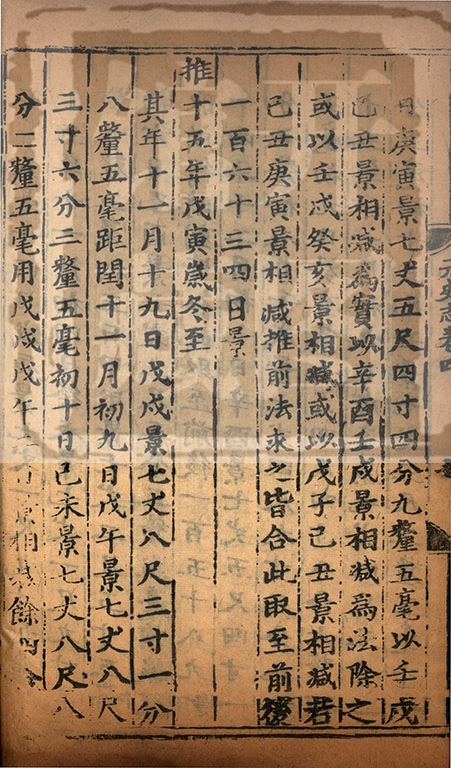 元史志卷四
日庚寅景七丈五尺四寸四分九釐五毫以壬戌
己丑景相减爲實以辛酉壬戌景相减爲法除之
或以壬戌癸亥景相减或以戊子己丑景相减若
己丑庚寅景相减推前法求之皆合此取至前後
一百六十三四日景
推十五年戊寅歲冬至
其年十一月十九日戊戌景七丈八尺三寸一分
八釐五毫距閏十一月初九日戊午景七丈八尺
三寸六分三釐五毫初十日己未景七丈八尺八
分二釐五毫用戊戌戊午二景相餘四